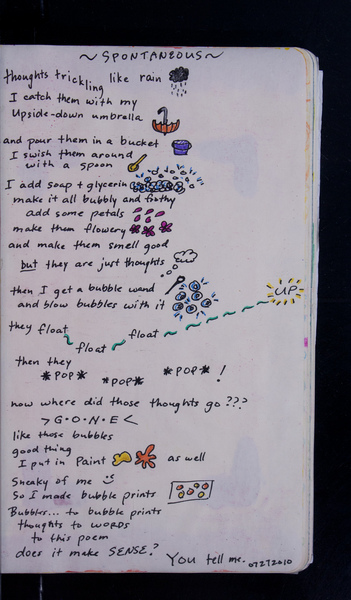 ~ SPONTANEOUS ~
thoughts trickling like rain
I catch them with my
Upside-down umbrella
and pour them in a bucket
I swish them around
with a spoon
I add soap + glycerin
make it all bubbly and frothy
add some petals
make them flowery
and make them smell good
but they are just thoughts
then I get a bubble wand
and blow bubbles with it
UP
they float
float
float
then they
*POP* *POP* *POP* !
now where did those thoughts go ???
> G·O·N·E <
like those bubbles
good thing
I put in Paint as well
Sneaky of me
So I made bubble prints
Bubbles... to bubble prints
thoughts to words
to this poem
does it make SENSE? You tell me. 07272010